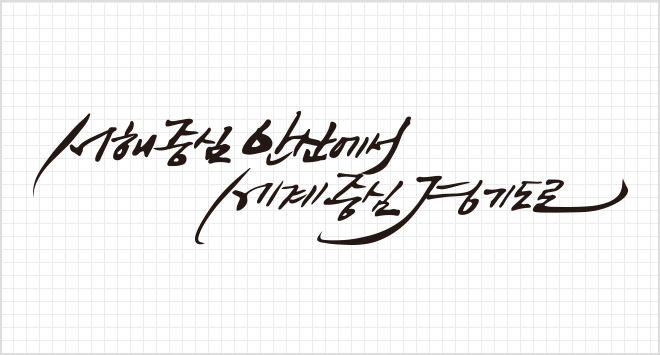 서해중심 안산에서
세계중심 경기도로